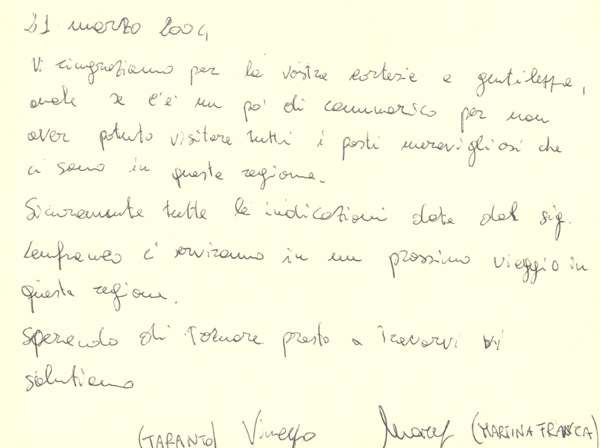 21 marzo 2004
Vi ringraziamo per la vostra cortesia e gentilezza,
anche se c'è un po' di rammarico per non
aver potuto visitare tutti i posti meravigliosi che
ci sono in questa regione.
Sicuramente tutte le indicazioni date dal sig.
Lanfranco ci serviranno in un prossimo viaggio in
questa regione.
Sperando di tornare presto a trovarvi vi
salutiamo
(TARANTO) (MARTINA FRANCA)